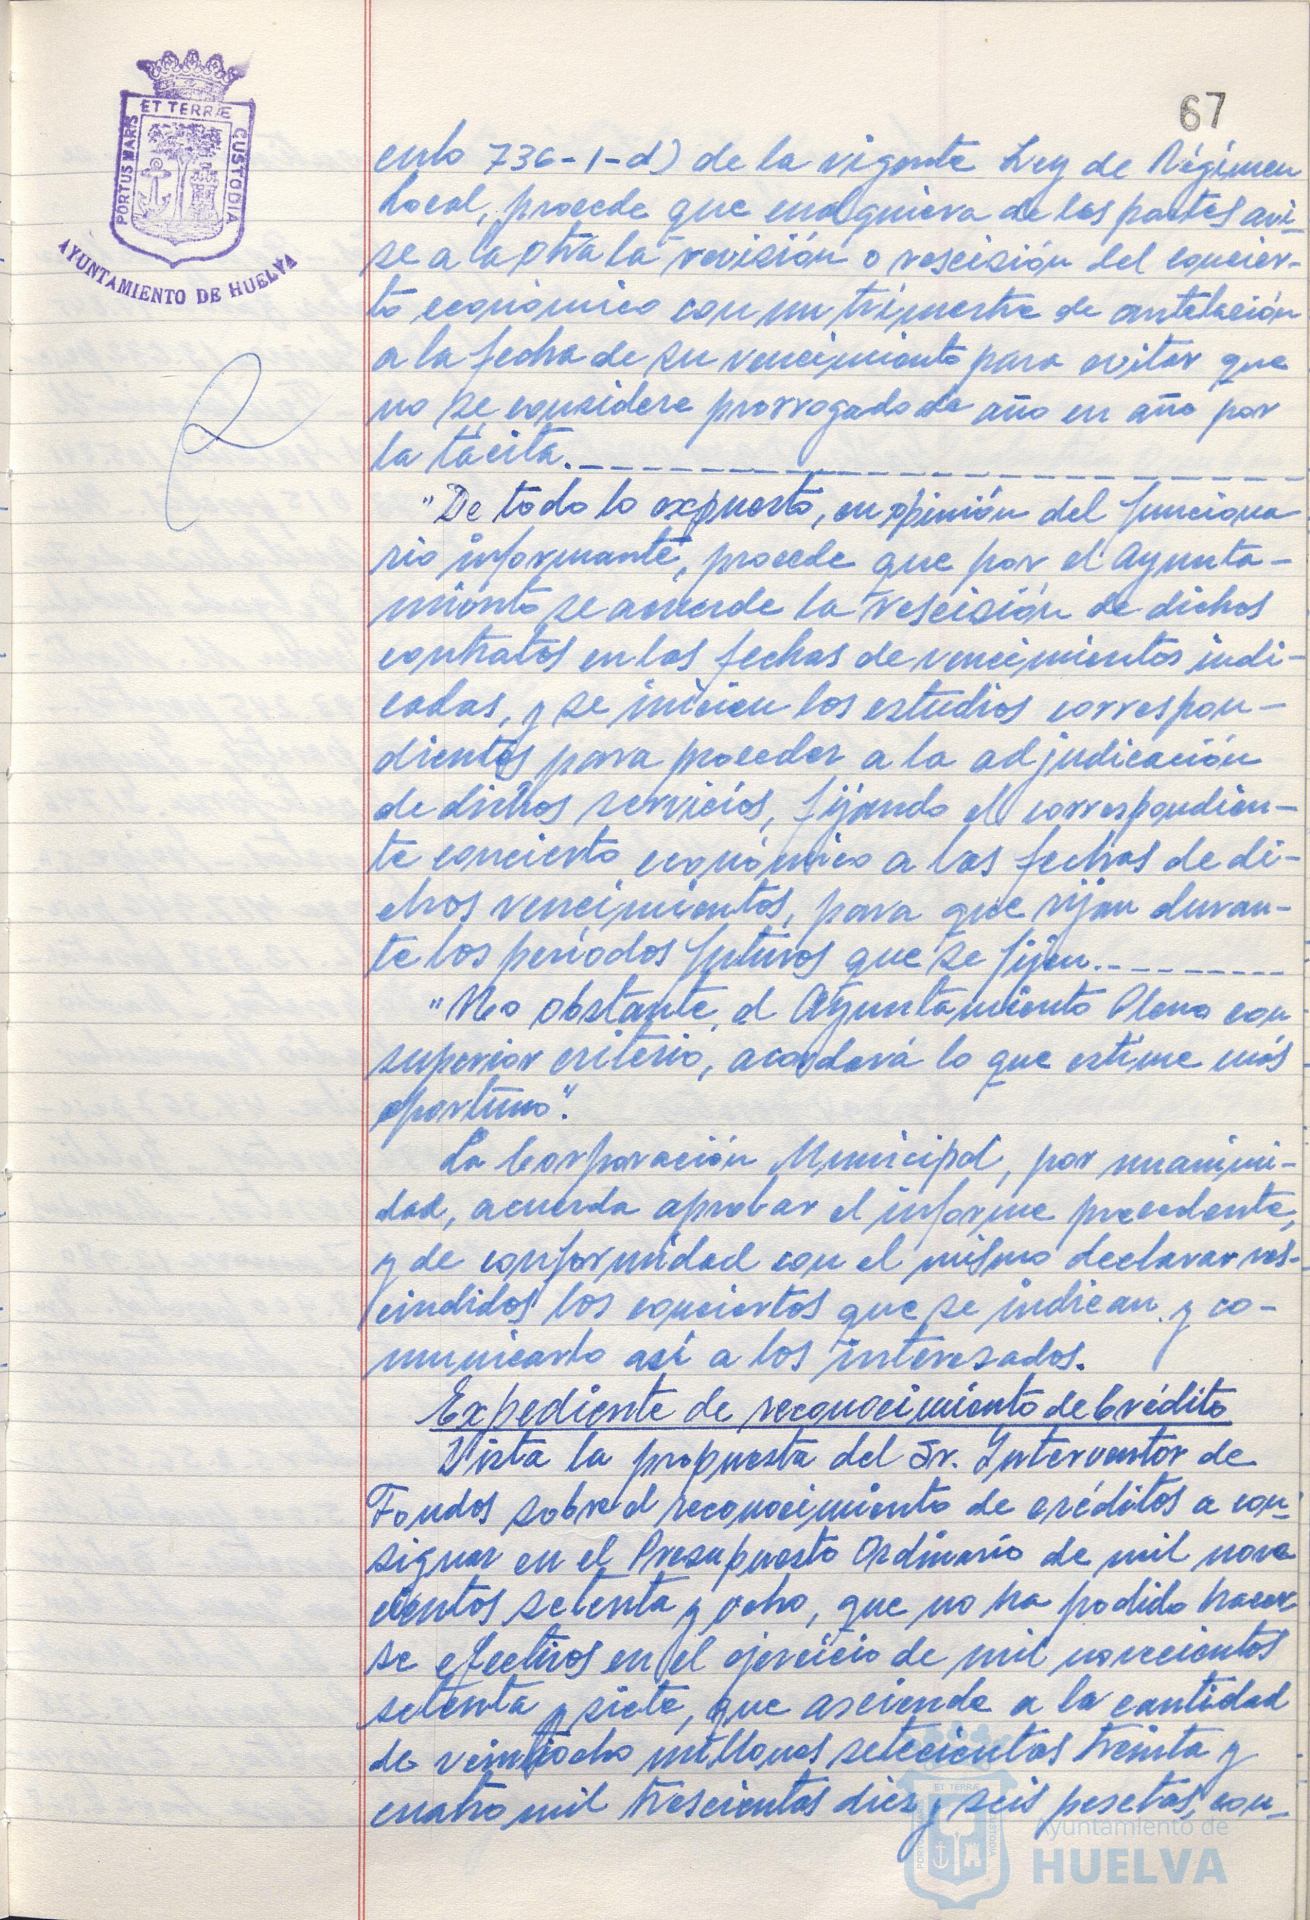 67
ET TERRÆ
PORTUS MARIS
CUSTODIA
AYUNTAMIENTO DE HUELVA
culo 736-1-d) de la vigente Ley de Régimen
Local, procede que cualquiera de las partes avi-
se a la otra la revisión o rescisión del concier-
to económico con un trimestre de antelación
a la fecha de su vencimiento para evitar que
no se considere prorrogado de año en año por
la tácita.
"De todo lo expuesto, en opinión del funciona
rio informante, procede que por el Ayunta-
miento se acuerde la rescisión de dichos
contratos en las fechas de vencimientos indi-
cadas, y se inicien los estudios correspon-
dientes para proceder a la adjudicación
de dichos servicios, fijando el correspondien-
te concierto económico a las fechas de di-
chos vencimientos, para que rijan duran-
te los períodos futuros que se fijen.
"No obstante, el Ayuntamiento Pleno con
superior criterio, acordará lo que estime más
oportuno".
La Corporación Municipal, por unanimi-
dad, acuerda aprobar el informe precedente,
y de conformidad con el mismo declarar res-
cindidos los conciertos que se indican y co-
municarlo así a los interesados.
Expediente de reconocimiento de Crédito
Vista la propuesta del Sr. Interventor de
Fondos sobre el reconocimiento de créditos a con-
signar en el Presupuesto Ordinario de mil nove
cientos setenta y ocho, que no ha podido hacer
se efectivos en el ejercicio de mil novecientos
setenta y siete, que asciende a la cantidad
de veintiocho millones setecientas treinta y
cuatro mil trescientas diez y seis pesetas, con-
ET TERRÆ
Ayuntamiento de
HUELVA